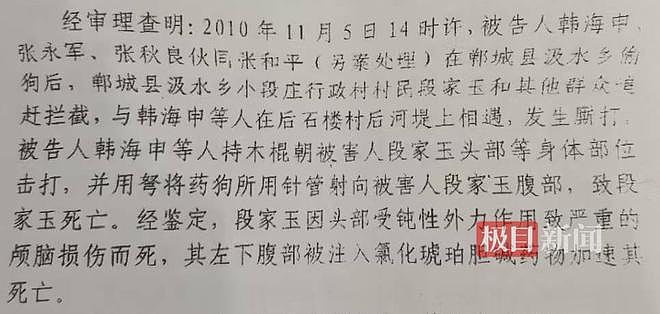 经审理查明:2010年11月5日14时许,被告人韩海申、
张永军、张秋良伙同张和平(另案处理)在郸城县汲水乡偷
狗后,郸城县汲水乡小段庄行政村村民段家玉和其他群众追
赶拦截,与韩海申等人在后石楼村后河堤上相遇,发生厮打,
被告人韩海申等人持木棍朝被害人段家玉头部等身体部位
击打,并用弩将药狗所用针管射向被害人段家玉腹部,致段
家玉死亡。经鉴定,段家玉因头部受钝性外力作用致严重的
颅脑损伤而死,其左下腹部被注入氯化琥珀胆碱药物加速其
死亡。
极目新闻